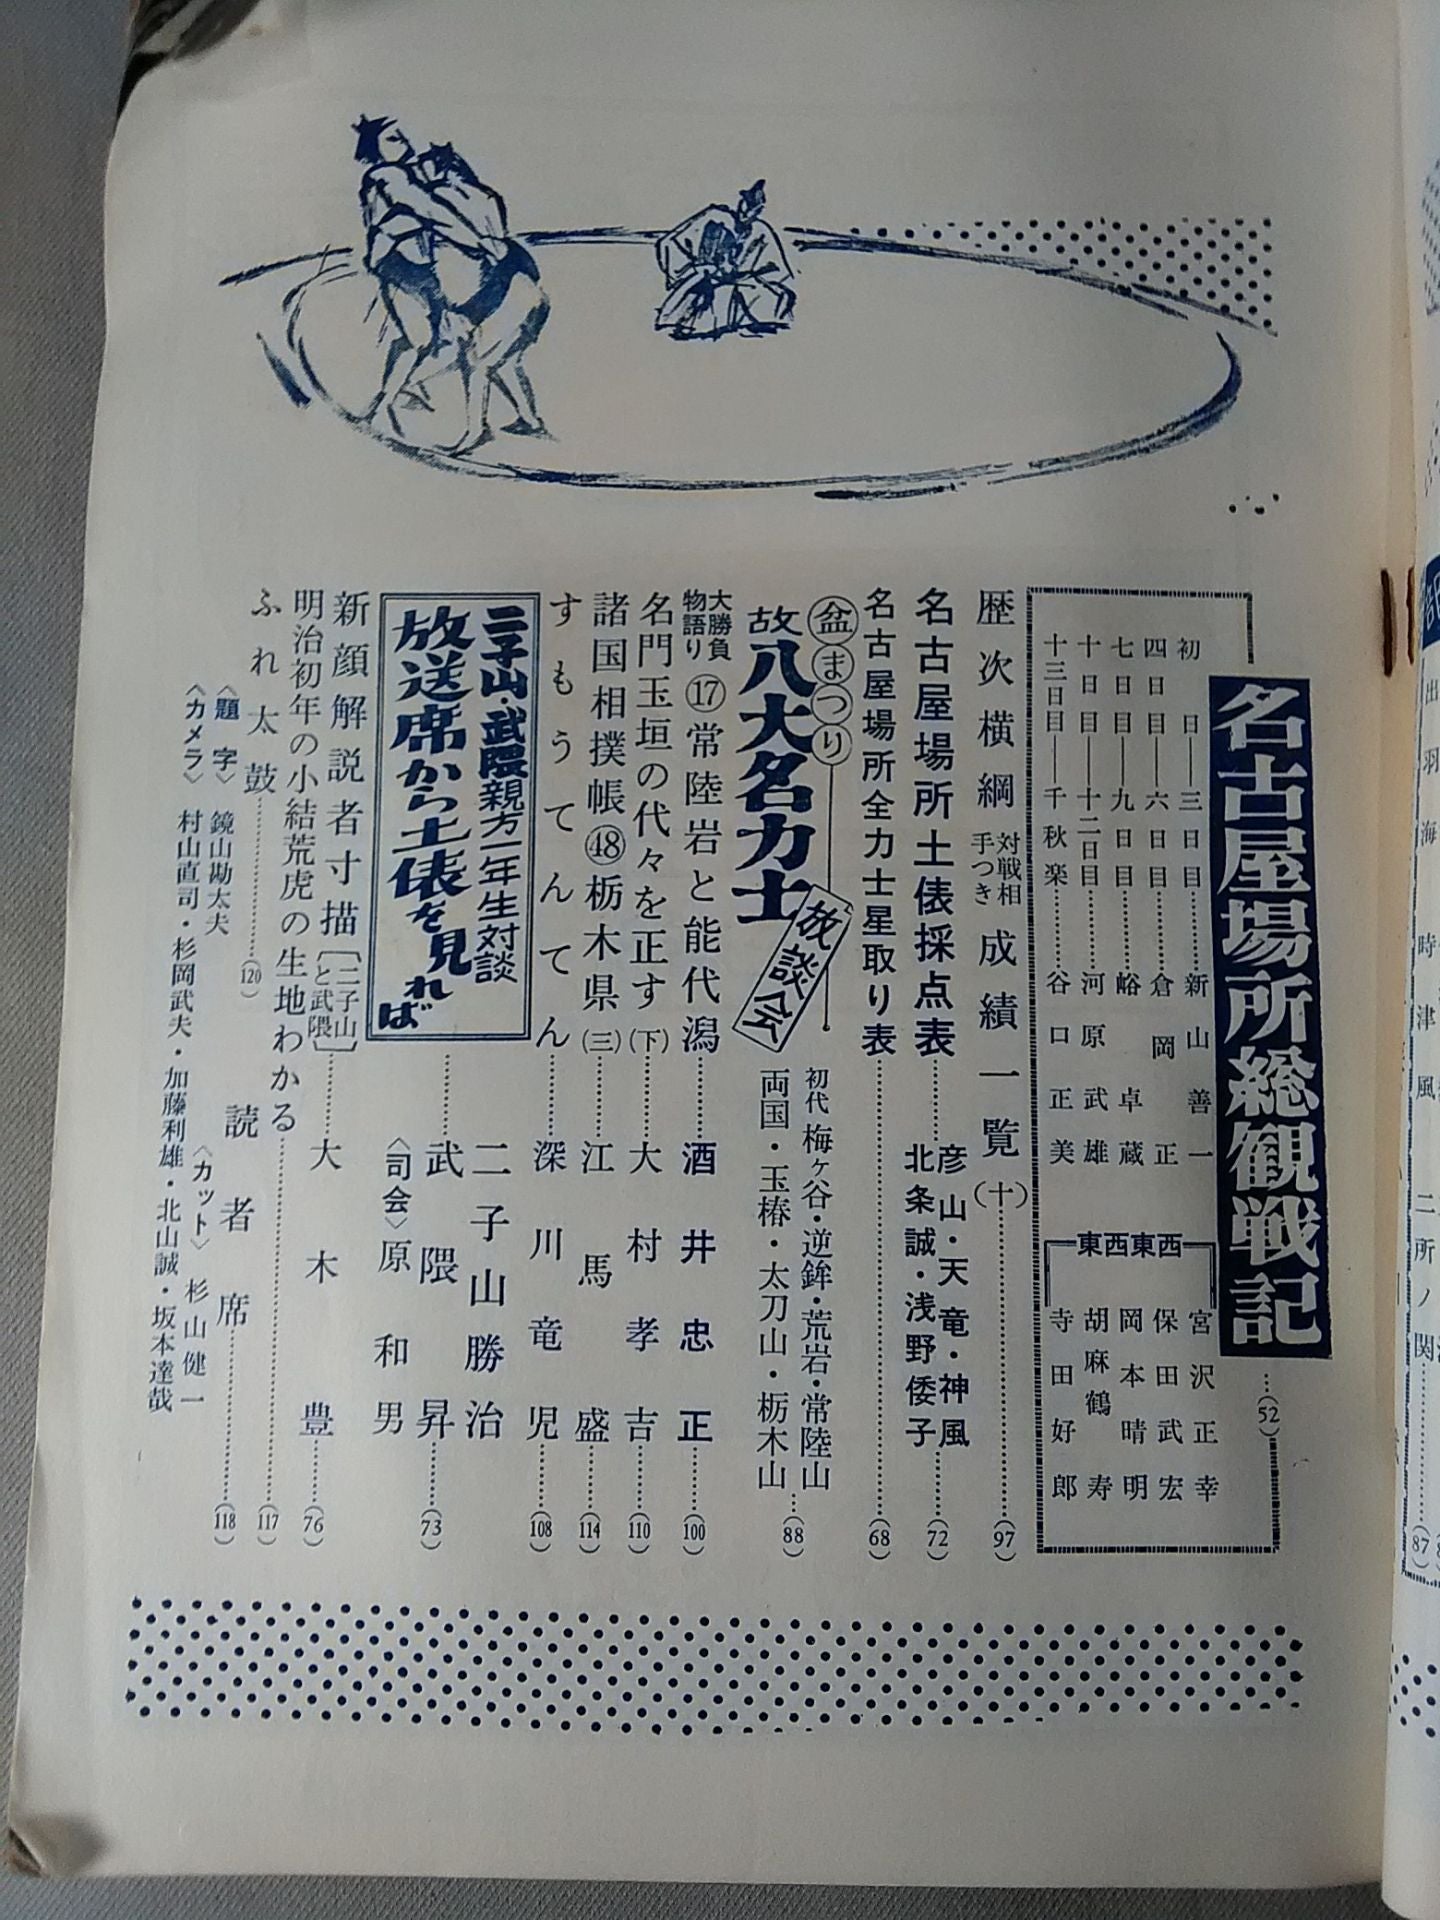 名古屋場所総観戦記……(52)
初日――三日目……新山善一
四日目――六日目……倉岡正
七日目――九日目……峪卓蔵
十日目――十二日目……河原武雄
十三日目――千秋楽……谷口正美
東西東西
宮沢正幸
保田武宏
岡本晴明
胡麻鶴寿
寺田好郎
歴次横綱対戦相手つき成績一覧(十)……(97)
名古屋場所土俵採点表……彦山・天竜・神風
北条誠・浅野倭子……(72)
名古屋場所全力士星取り表……(68)
盆まつり
故八大名力士放談会
初代梅ヶ谷・逆鉾・荒岩・常陸山
両国・玉椿・太刀山・栃木山……(88)
大勝負物語り⑰常陸岩と能代潟……酒井忠正……(100)
名門玉垣の代々を正す(下)……大村孝吉……(110)
諸国相撲帳㊽栃木県(三)……江馬盛……(114)
すもうてんてん……深川竜児……(108)
二子山・武隈親方一年生対談
放送席から土俵を見れば
二子山勝治
……武隈昇……(73)
〈司会〉原和男
新顔解説者寸描〔二子山と武隈〕……大木豊……(76)
明治初年の小結荒虎の生地わかる……(117)
ふれ太鼓……(120)
読者席……(118)
〈題字〉鏡山勘太夫
〈カット〉杉山健一
〈カメラ〉村山直司・杉岡武夫・加藤利雄・北山誠・坂本達哉
出羽海
時津風
二所ノ関……(87)